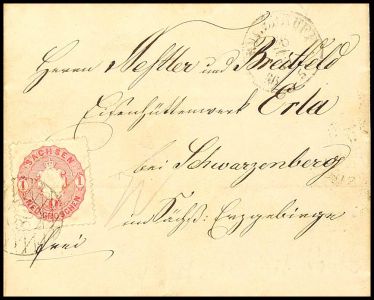 Herren Nestler und Breitfeld
Eisenhüttenwerk Erla
bei Schwarzenberg
im Sächs: Erzgebirge
frei
SACHSEN
1 1
NEU-GROSCHEN